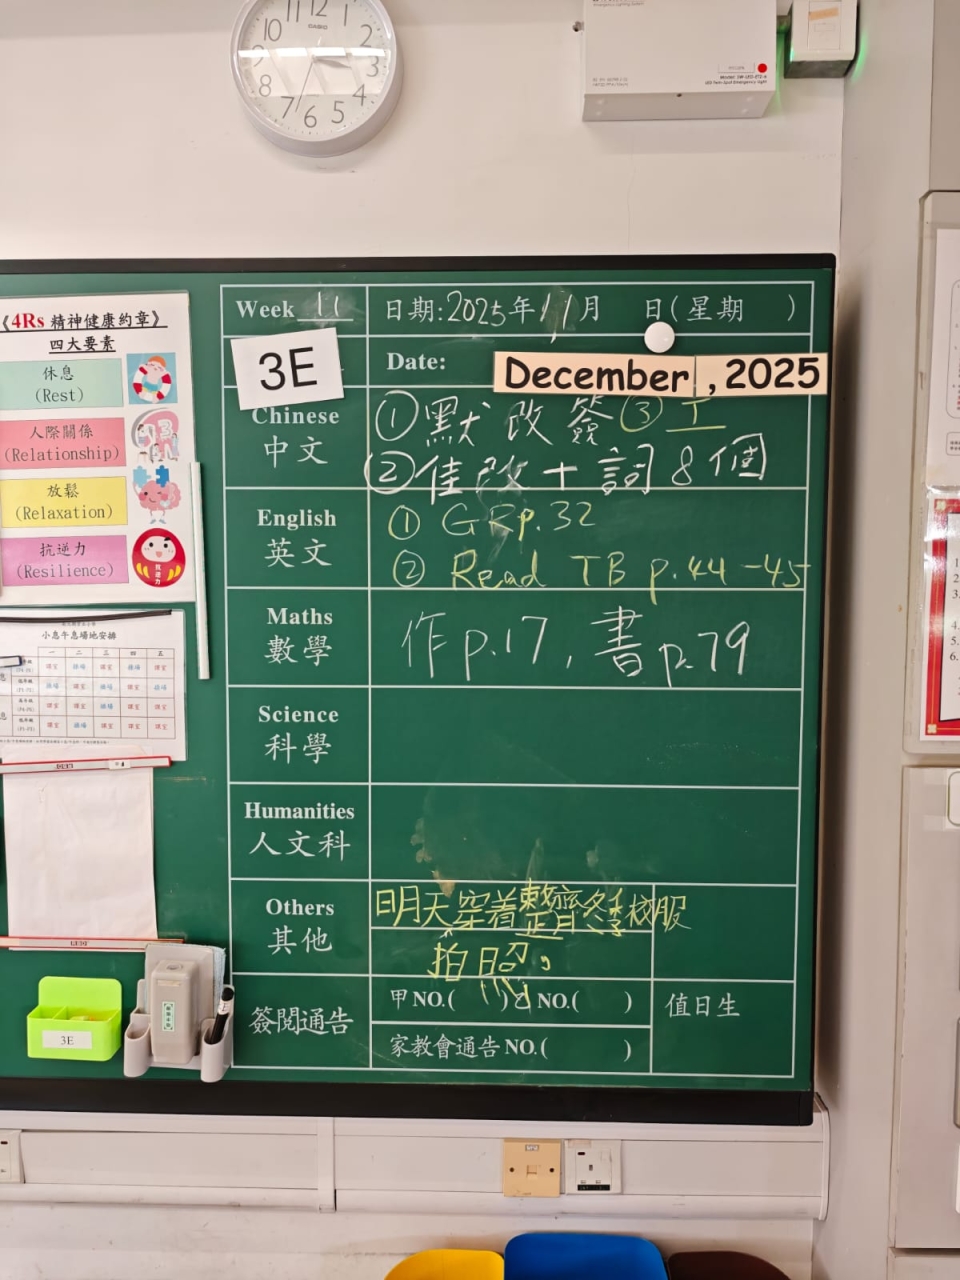 12 1 2 3 4 5 6 7 8 9 10 11
CASIO
《4Rs 精神健康約章》
四大要素
休息
(Rest)
人際關係
(Relationship)
放鬆
(Relaxation)
抗逆力
(Resilience)
抗逆力
小息午息場地安排
一 二 三 四 五
3E
Week 11
日期:2025年11月 日(星期 )
3E
Date:
December , 2025
Chinese
中文
① 默改簽 ③ 工
② 佳改十詞8個
English
英文
① GR p.32
② Read TB p.44-45
Maths
數學
作p.17, 書p.79
Science
科學
Humanities
人文科
Others
其他
明天穿着整齊冬季校服
拍照。
簽閱通告
甲NO.( ) 乙NO.( )
家教會通告NO.( )
值日生